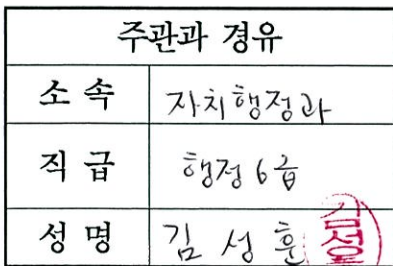 주관과 경유
소 속 자치행정과
직 급 행정6급
성 명 김 성 훈